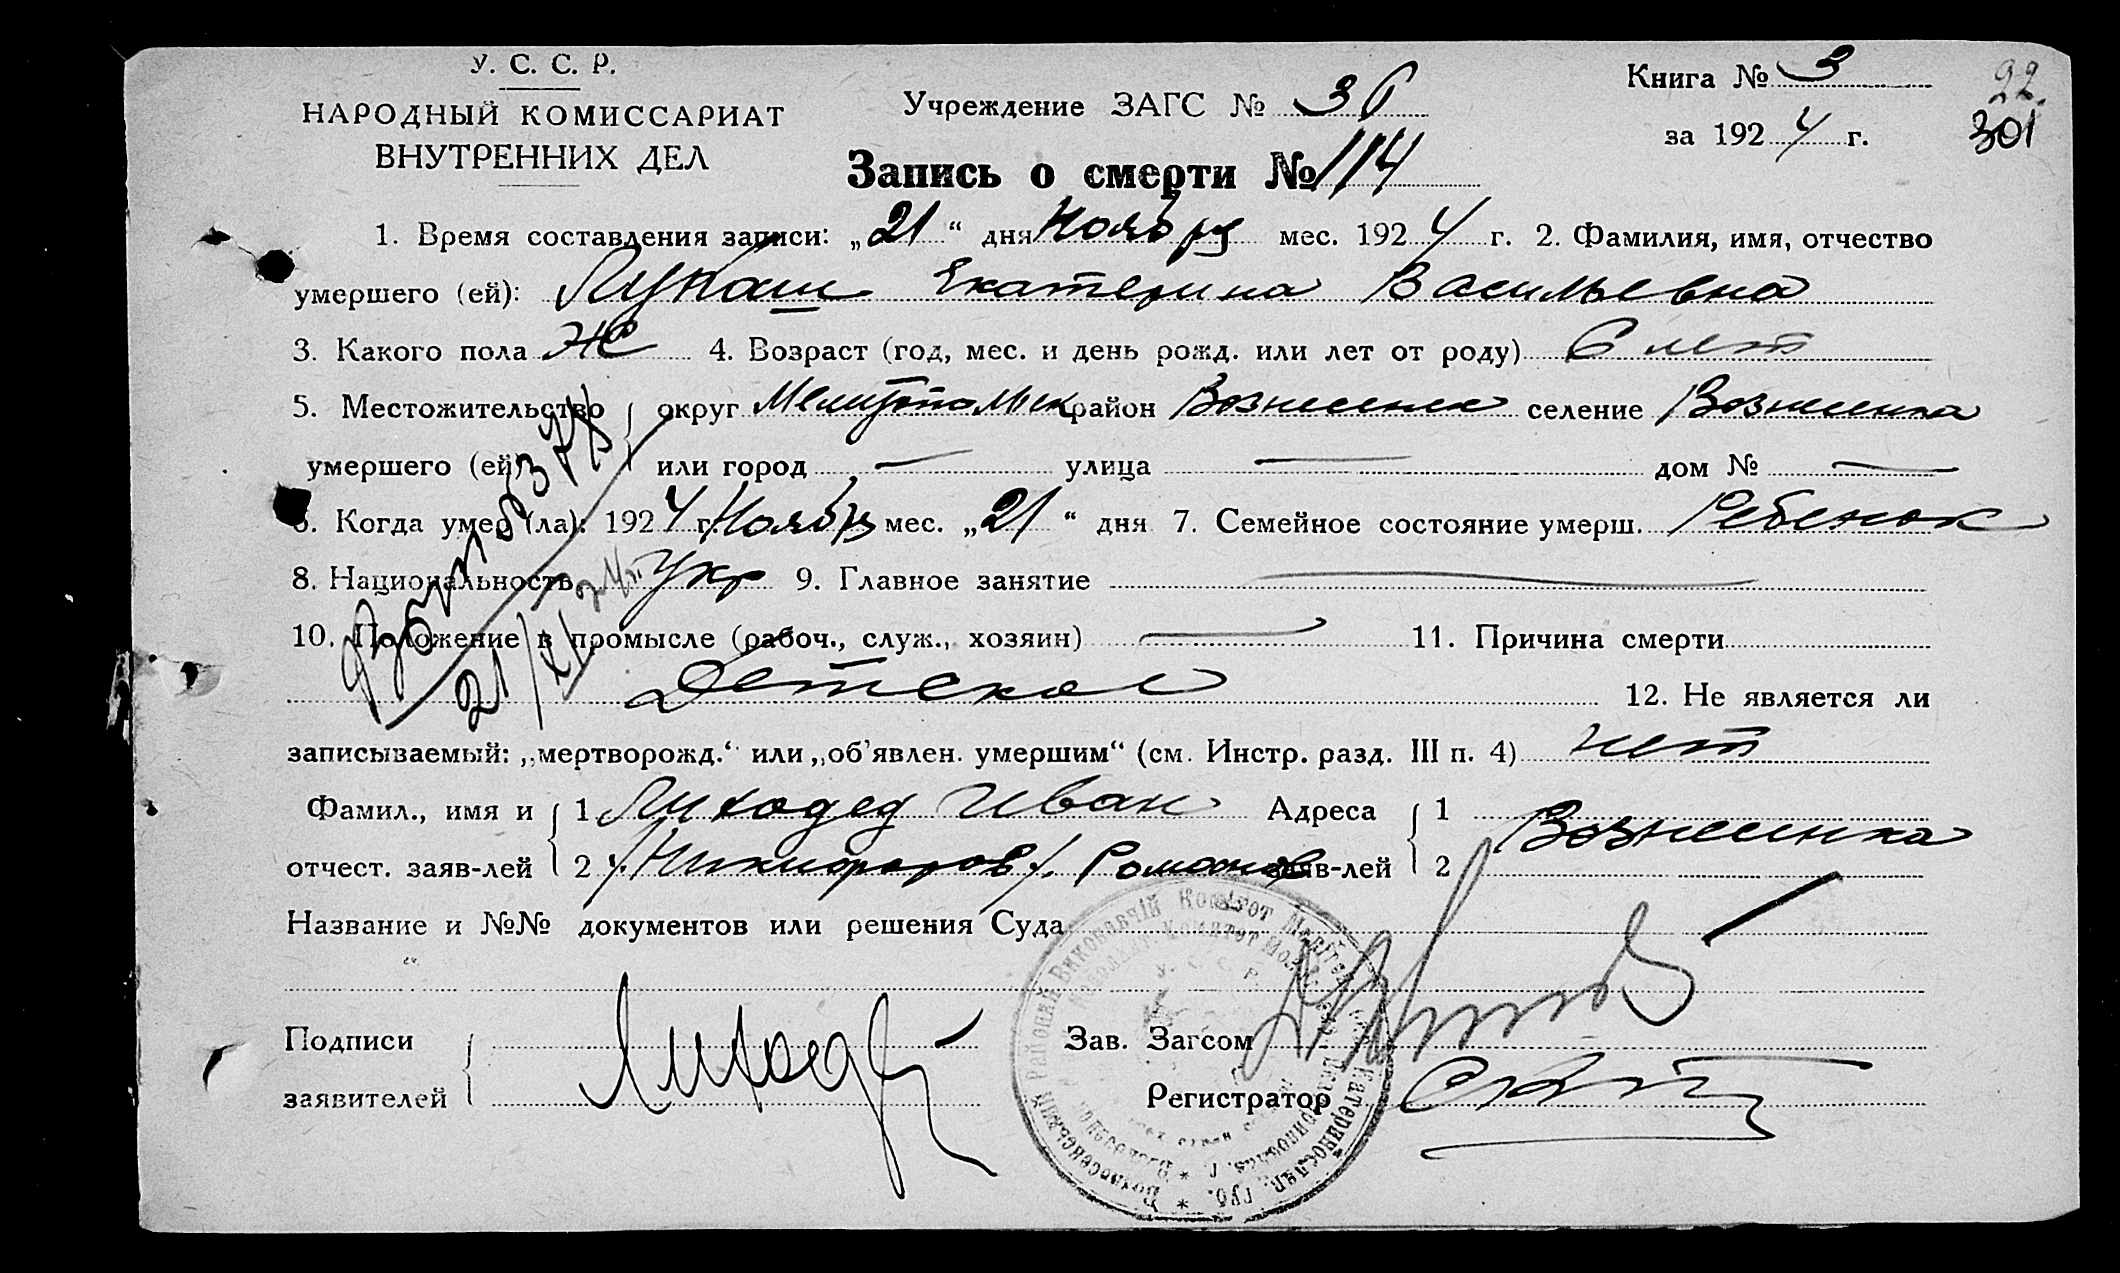 У. С. С. Р.
НАРОДНЫЙ КОМИССАРИАТ
ВНУТРЕННИХ ДЕЛ
Учреждение ЗАГС № 36
Книга № 3
за 1924 г.
92.
301
Запись о смерти № 114
1. Время составления записи: „21“ дня Ноября мес. 1924 г. 2. Фамилия, имя, отчество
умершего (ей): Лукаш Екатерина Васильевна
3. Какого пола Ж 4. Возраст (год, мес. и день рожд. или лет от роду) 6 лет
5. Местожительство округ Мелитопольск район Вознесенск селение Вознесенка
умершего (ей) или город — улица — дом № —
6. Когда умер (ла): 1924 г. Ноября мес. „21“ дня 7. Семейное состояние умерш. Ребенок
8. Национальность Укр 9. Главное занятие —
10. Положение в промысле (рабоч., служ., хозяин) — 11. Причина смерти
Детская 12. Не является ли
записываемый: „мертворожд.“ или „об’явлен. умершим“ (см. Инстр. разд. III п. 4) нет
Фамил., имя и 1 Лиходед Иван Адреса 1 Вознесенка
отчест. заяв-лей 2 /Никифоров/. Романов заяв-лей 2
Название и №№ документов или решения Суда
Подписи
заявителей
Лиходед
Зав. Загсом
Регистратор
21/XI 24 г.